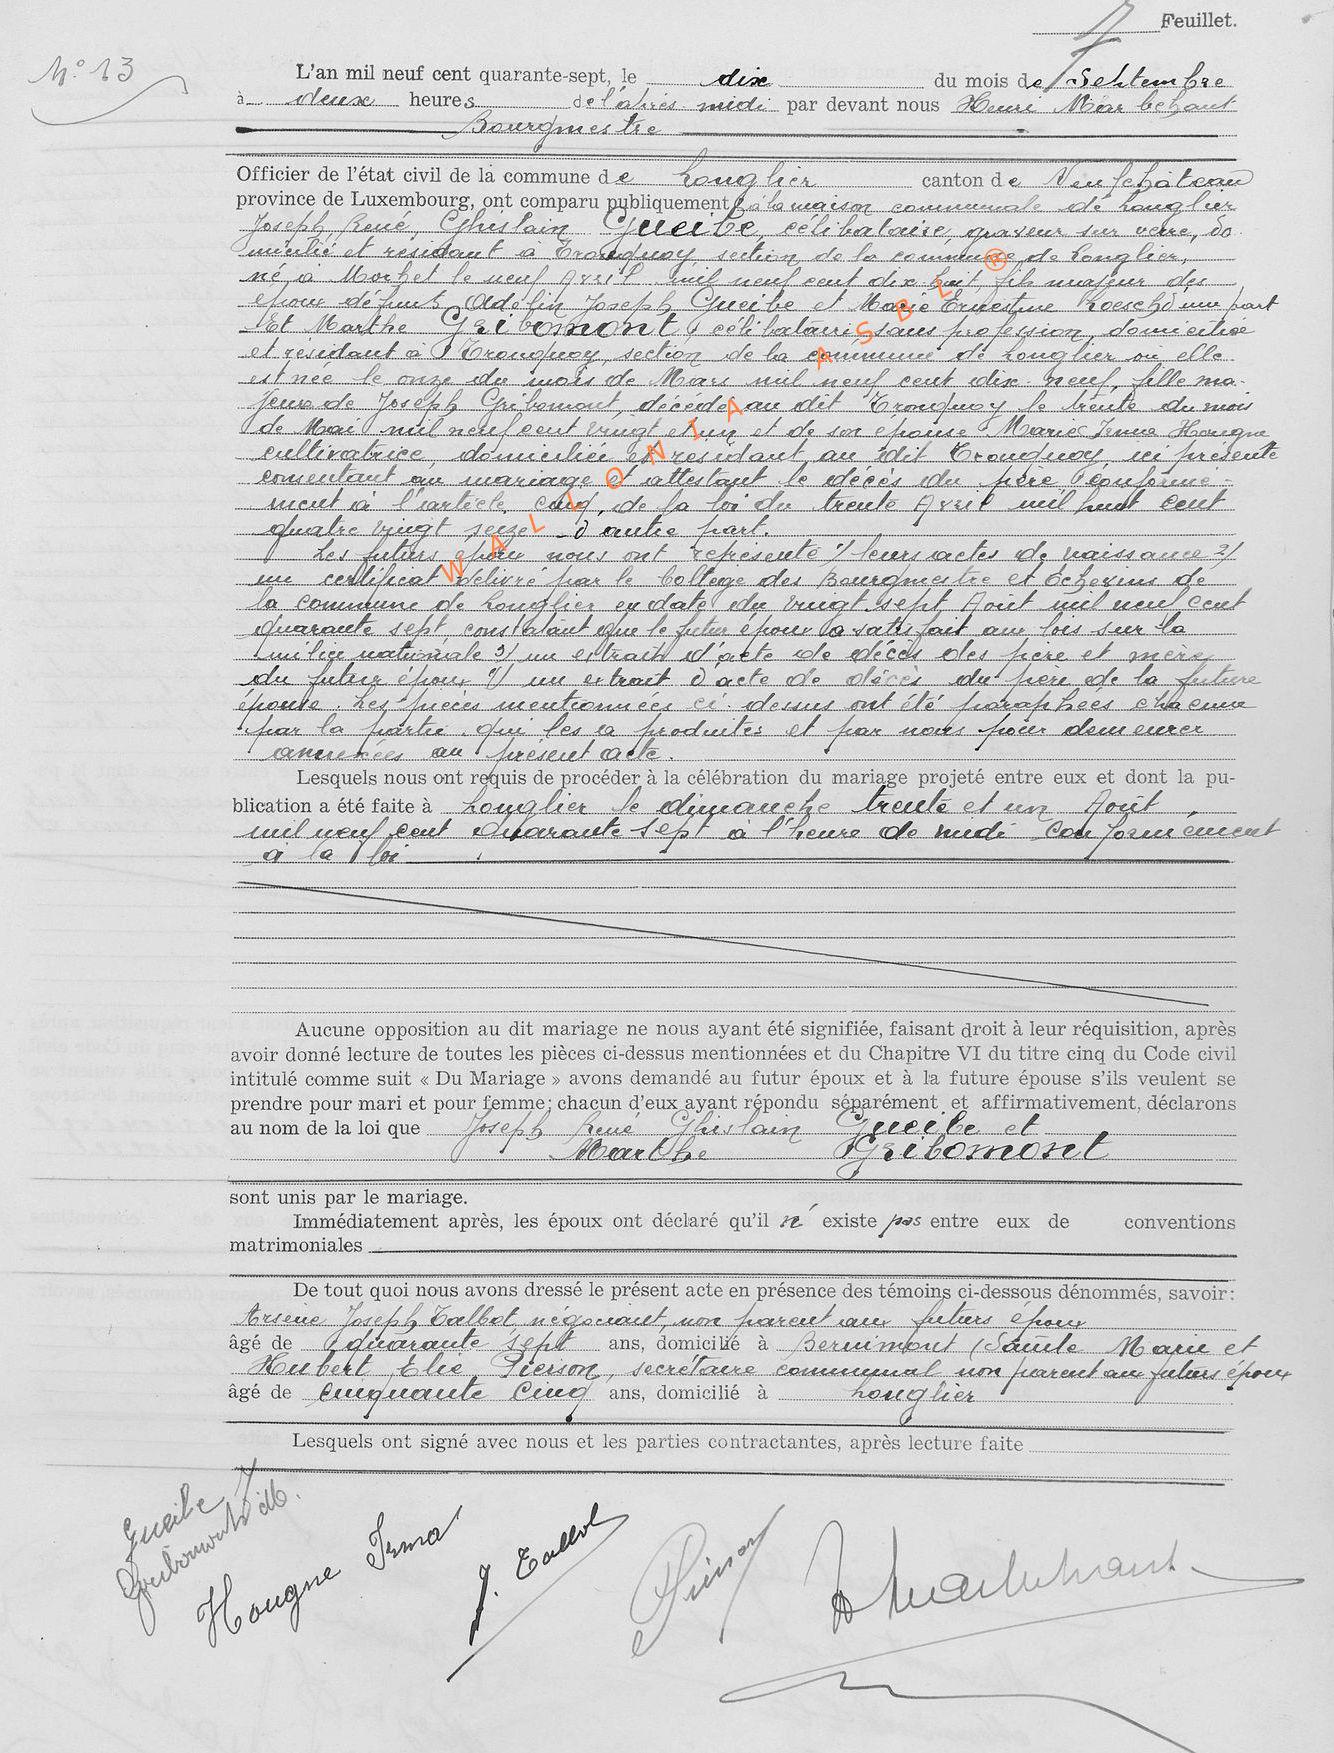 7 Feuillet.
N° 13
L'an mil neuf cent quarante-sept, le dix du mois de Septembre
à deux heures de l'après midi par devant nous Henri Marbehant
Bourgmestre
Officier de l'état civil de la commune de Longlier canton de Neufchâteau
province de Luxembourg, ont comparu publiquement à la maison communale de Longlier
Joseph, René, Ghislain Gueibe, célibataire, graveur sur verre, do
micilié et résidant à Tronquoy, section de la commune de Longlier,
né à Morhet le neuf Avril mil neuf cent dix huit, fils majeur des
époux défunts Adelin Joseph Gueibe et Marie Ernestine d'une part
Et Marthe Gribomont, célibataire, sans profession, domiciliée
et résidant à Tronquoy, section de la commune de Longlier où elle
est née le onze du mois de Mars mil neuf cent dix-neuf, fille ma-
jeure de Joseph Gribomont, décédé au dit Tronquoy le trente du mois
de Mai mil neuf cent vingt et un et de son épouse Marie Irma Hougne
cultivatrice, domiciliée et résidant au dit Tronquoy, ici présente
consentant au mariage et attestant le décès du père conformé-
ment à l'article cinq de la loi du trente Avril mil huit cent
quatre vingt seize d'autre part.
Les futurs époux nous ont représenté 1/ leurs actes de naissance 2/
un certificat délivré par le Collège des Bourgmestre et Echevins de
la commune de Longlier en date du vingt-sept Août mil neuf cent
quarante sept, constatant que le futur époux a satisfait aux lois sur la
milice nationale 3/ un extrait d'acte de décès des père et mère
du futur époux 4/ un extrait d'acte de décès du père de la future
épouse. Les pièces mentionnées ci-dessus ont été paraphées chacune
par la partie qui les a produites et par nous pour demeurer
annexées au présent acte.
Lesquels nous ont requis de procéder à la célébration du mariage projeté entre eux et dont la pu-
blication a été faite à Longlier le dimanche trente et un Août
mil neuf cent quarante sept à l'heure de midi conformément
à la loi
Aucune opposition au dit mariage ne nous ayant été signifiée, faisant droit à leur réquisition, après
avoir donné lecture de toutes les pièces ci-dessus mentionnées et du Chapitre VI du titre cinq du Code civil
intitulé comme suit « Du Mariage » avons demandé au futur époux et à la future épouse s'ils veulent se
prendre pour mari et pour femme; chacun d'eux ayant répondu séparément et affirmativement, déclarons
au nom de la loi que Joseph René Ghislain Gueibe et
Marthe Gribomont
sont unis par le mariage.
Immédiatement après, les époux ont déclaré qu'il n' existe pas entre eux de conventions
matrimoniales
De tout quoi nous avons dressé le présent acte en présence des témoins ci-dessous dénommés, savoir:
Arsène Joseph Talbot, négociant, non parent aux futurs époux
âgé de quarante sept ans, domicilié à Bernimont (Sainte Marie et
Hubert Elie Pierson, secrétaire communal non parent aux futurs époux
âgé de cinquante cinq ans, domicilié à Longlier
Lesquels ont signé avec nous et les parties contractantes, après lecture faite
Gueibe J
Gribomont M.
Hougne Irma
J. Talbot
Pierson
H Marbehant
WALLONIA ASBL ®